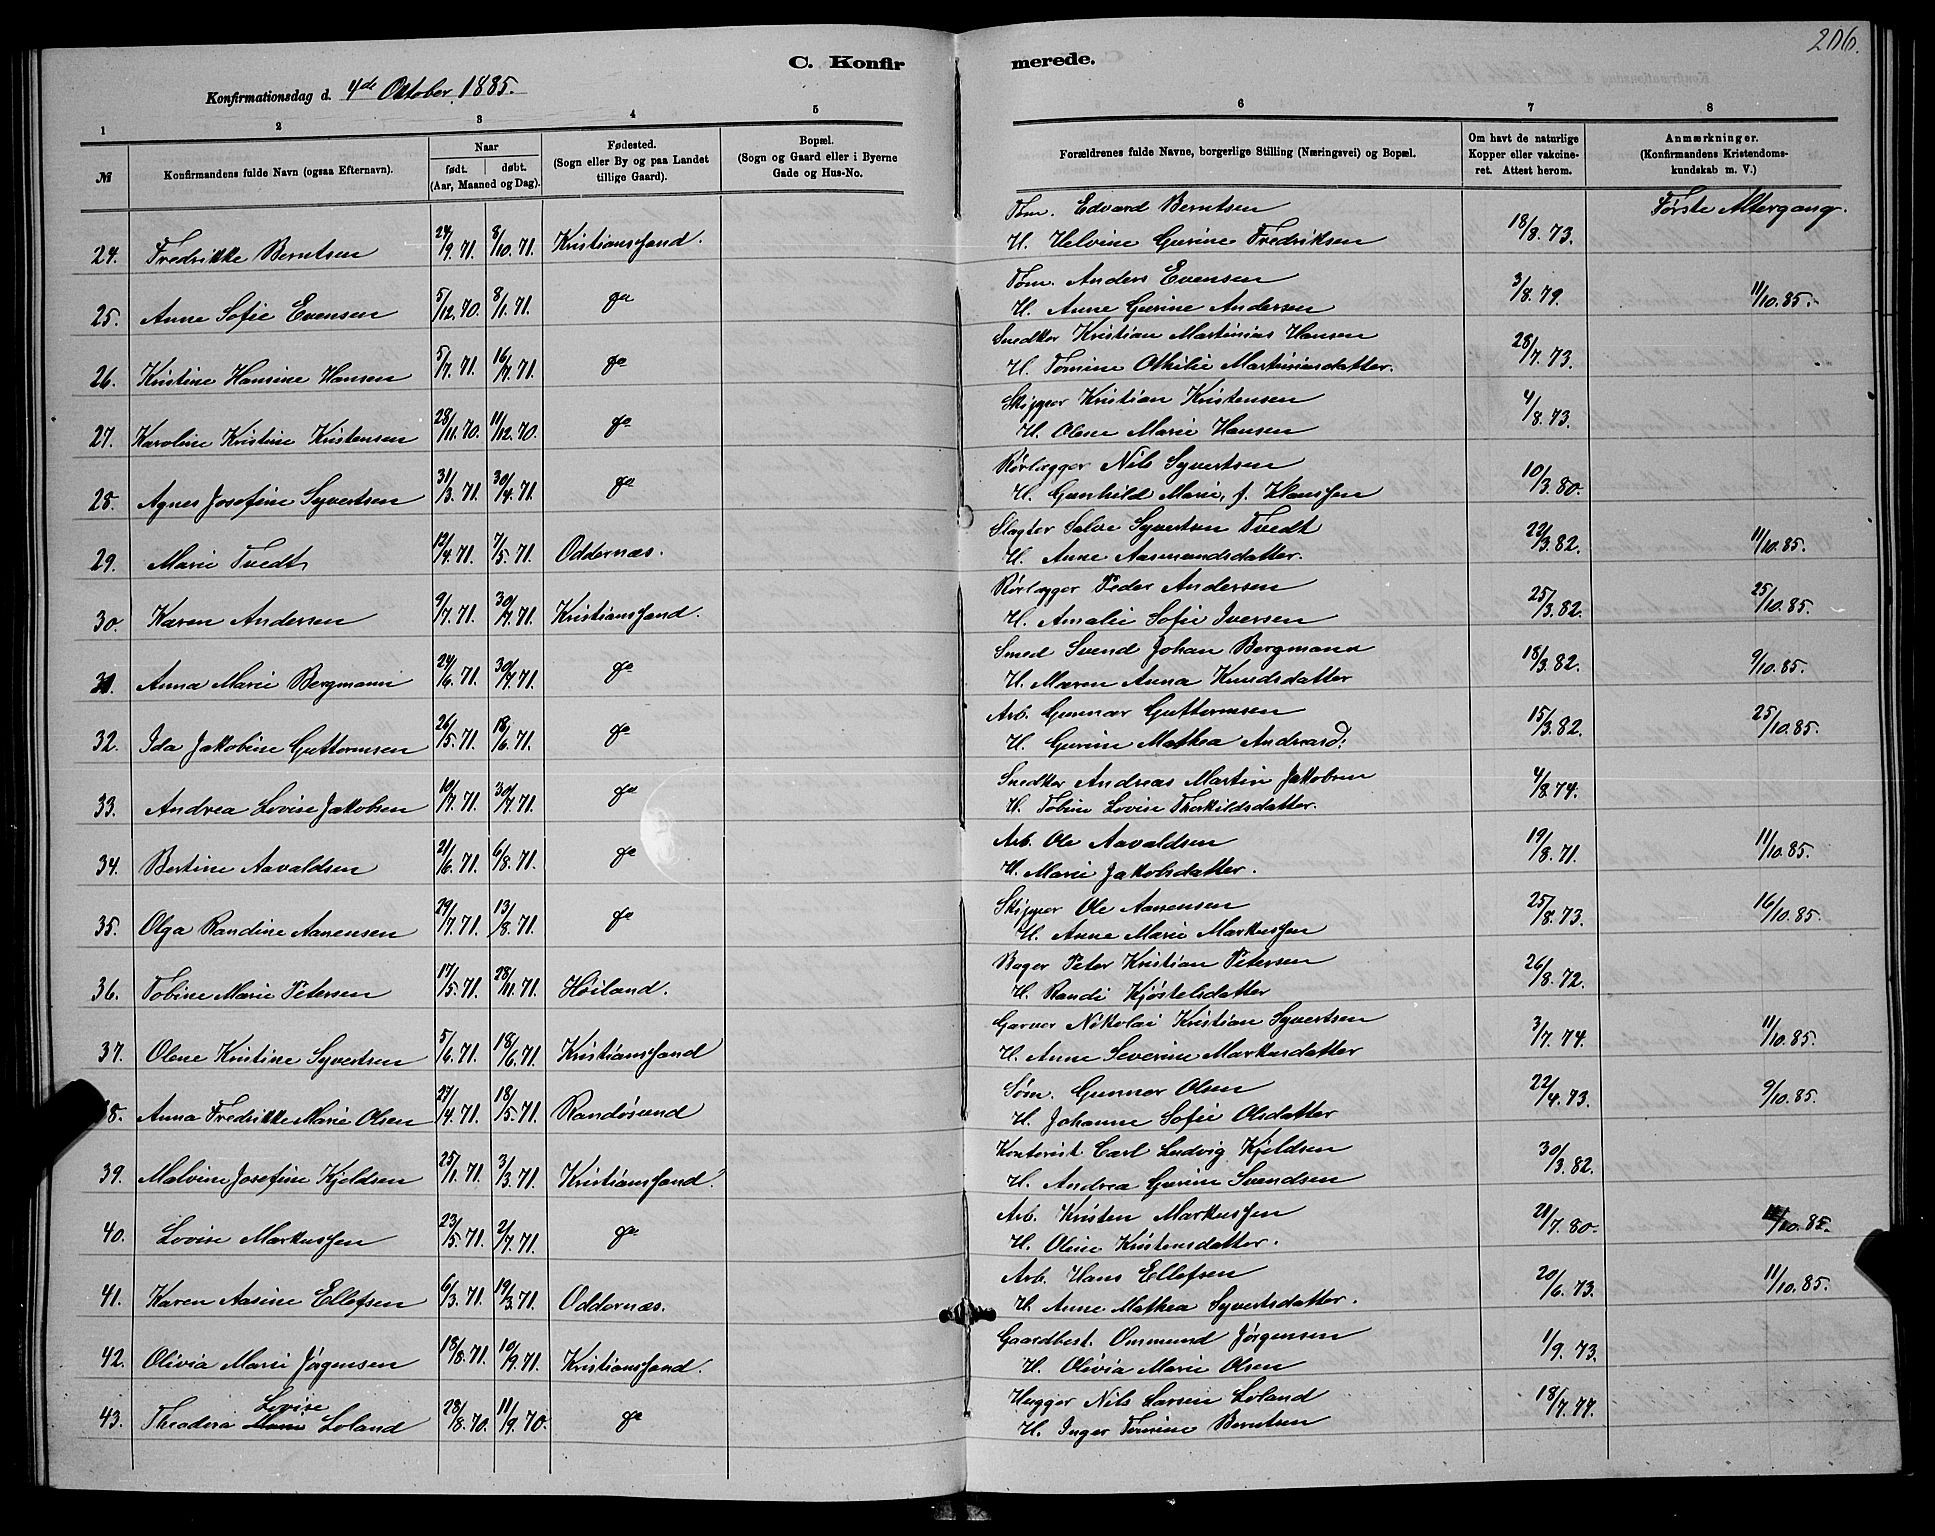 206.
C. Konfirmerede.
Konfirmationsdag d. 4de Oktober 1885.
1 2 3 4 5 6 7 8
№ Konfirmandens fulde Navn (ogsaa Efternavn). Naar født. døbt. (Aar, Maaned og Dag). Fødested. (Sogn eller By og paa Landet tillige Gaard). Bopæl. (Sogn og Gaard eller i Byerne Gade og Hus-No. Forældrenes fulde Navne, borgerlige Stilling (Næringsvei) og Bopæl. Om havt de naturlige Kopper eller vakcineret. Attest herom. Anmærkninger. (Konfirmandens Kristendomskundskab m. V.)
Første Altergang.
24. Fredrikke Berntsen 24/9.71. 8/10.71. Kristianssand. Tøm. Edvard Berntsen
H. Helvine Gurine Fredriksen 18/8.73.
25. Anne Sofie Evensen 5/12.70. 8/1.71. do Tøm. Anders Evensen
H. Anne Gurine Andersen 3/8.79. 11/10.85.
26. Kristine Hansine Hansen 5/7.71. 16/7.71. do Snedker Kristian Martinius Hansen
H. Tomine Othilie Martiniusdatter. 28/7.73.
27. Karoline Kristine Kristensen 28/11.70. 11/12.70. do Skipper Kristian Kristensen
H. Olene Marie Hansen 4/8.73.
28. Agnes Josefine Syvertsen 31/3.71. 30/4.71. do Rørlægger Nils Syvertsen
H. Gunhild Marie, f. Klanssen 10/3.80.
29. Marie Tvedt 12/4.71. 7/5.71. Oddernæs. Slagter Salve Syvertsen Tvedt
H. Anne Aasmundsdatter. 22/3.82. 11/10.85.
30. Karen Andersen 9/7.71. 30/7.71. Kristianssand. Rørlægger Peder Andersen
H. Amalie Sofie Iversen 25/3.82. 25/10.85.
31. Anna Marie Bergmann 24/6.71. 30/7.71. do Smed Svend Johan Bergmann
H. Maren Anna Knudsdatter 18/3.82. 9/10.85.
32. Ida Jakobine Guttormsen 26/5.71. 18/6.71. do Arb. Gunnar Guttormsen
H. Gurine Mathea Andreasd: 15/3.82. 25/10.85.
33. Andrea Lovise Jakobsen 10/7.71. 30/7.71. do Snedker Andreas Martin Jakobsen
H. Tobine Lovise Thorkildsdatter. 4/8.74.
34. Bertine Aavaldsen 21/6.71. 6/8.71. do Arb. Ole Aavaldsen
H. Marie Jakobsdatter. 19/8.71. 11/10.85.
35. Olga Randine Aanensen 29/7.71. 13/8.71. do Skipper Ole Aanensen
H. Anne Marie Markussen 25/8.73. 16/10.85.
36. Tobine Marie Petersen 17/5.71. 28/11.71. Høiland. Bager Peter Kristian Petersen
H. Randi Kjøstelsdatter 26/8.72.
37. Olene Kristine Syvertsen 5/6.71. 18/6.71. Kristianssand Garver Nikolai Kristian Syvertsen
H. Anne Severine Markusdatter 3/7.74. 11/10.85.
38. Anna Fredrikke Marie Olsen 27/4.71. 18/5.71. Randøsund Søm. Gunnar Olsen
H. Johanne Sofie Olsdatter 22/4.73. 9/10.85.
39. Malvine Josefine Kjeldsen 25/1.71. 3/3.71. Kristianssand. Kontorist Carl Ludvig Kjeldsen
H. Andrea Gurine Svendsen 30/3.82.
40. Lovise Markussen 23/5.71. 2/7.71. do Arb. Kristen Markussen
H. Oline Kristensdatter. 21/7.80. /10.85.
41. Karen Aasine Ellefsen 6/3.71. 19/3.71. Oddernæs. Arb. Hans Ellefsen
H. Anne Mathea Syvertsdatter. 20/6.73. 11/10.85.
42. Olivia Marie Jørgensen 18/8.71. 10/9.71. Kristianssand. Gaardbest. Ommund Jørgensen
H. Olivia Marie Olsen 1/9.73.
43. Theodora Marie Lovise Loland 28/8.70. 11/9.70. do Nils Larsen Loland
H. Inger Tomine Berntsen 18/7.77.